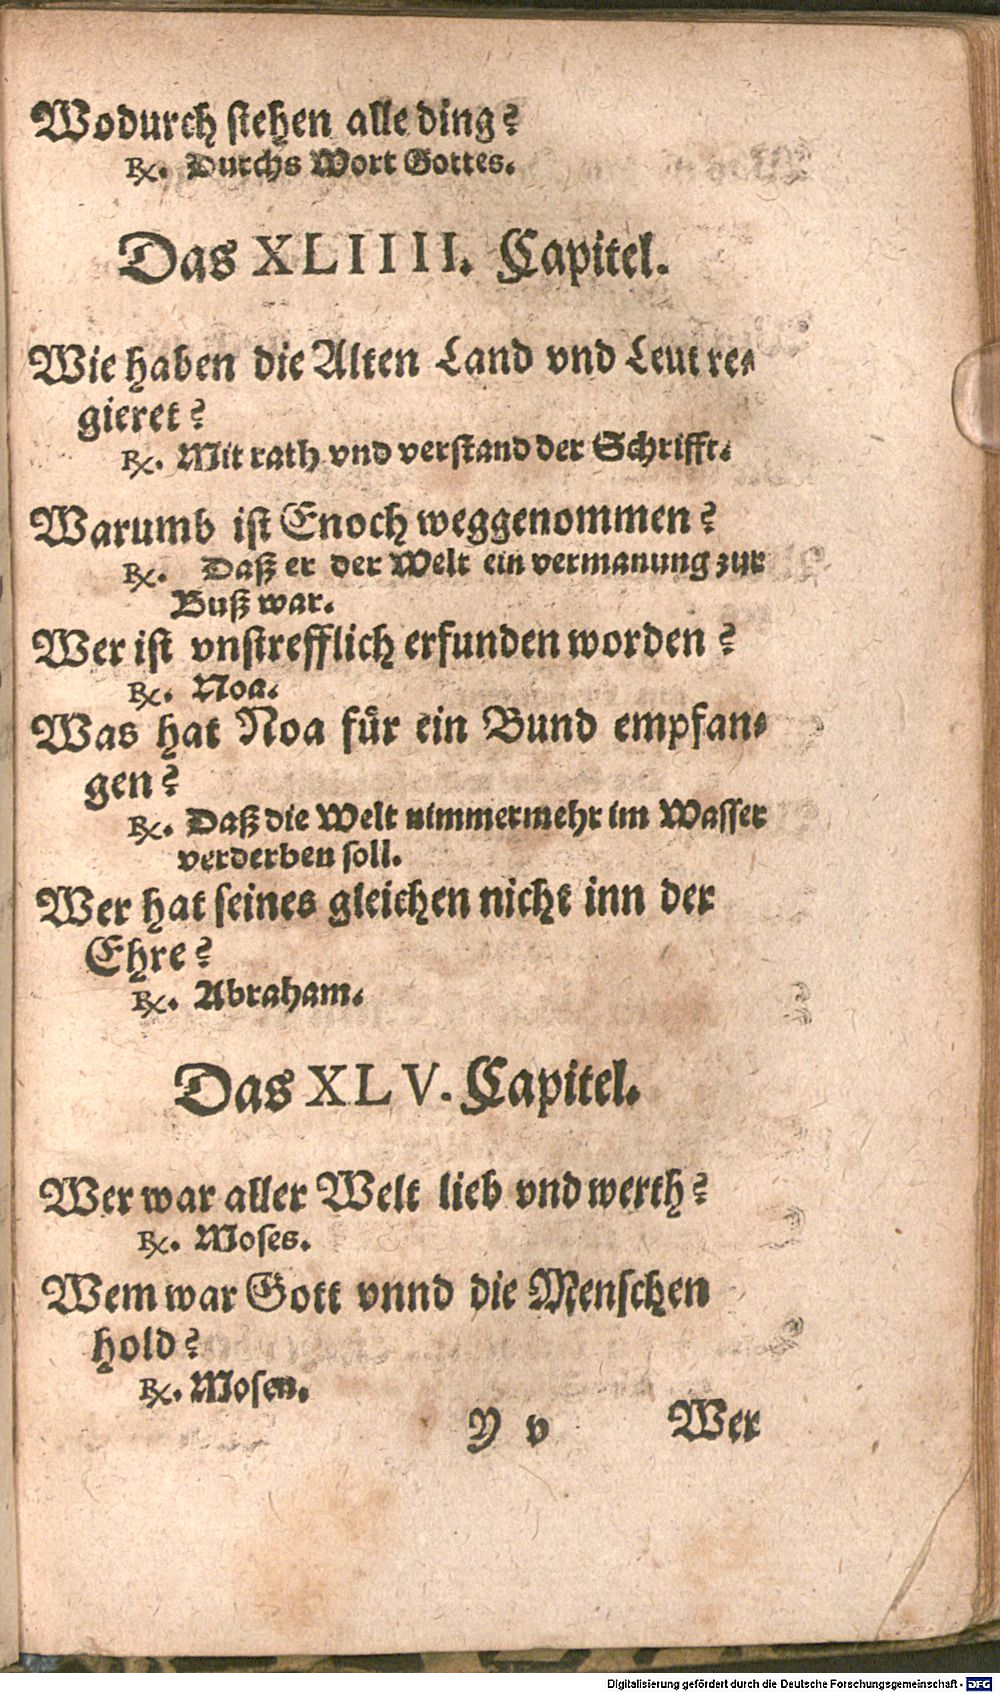 Wodurch stehen alle ding?
℞. Durchs Wort Gottes.
Das XLIIII. Capitel.
Wie haben die Alten Land vnd Leut re-
gieret?
℞. Mit rath vnd verstand der Schrifft.
Warumb ist Enoch weggenommen?
℞. Daß er der Welt ein vermanung zur
Buß war.
Wer ist vnstrefflich erfunden worden?
℞. Noa.
Was hat Noa für ein Bund empfan-
gen?
℞. Daß die Welt nimmermehr im Wasser
verderben soll.
Wer hat seines gleichen nicht inn der
Ehre?
℞. Abraham.
Das XLV. Capitel.
Wer war aller Welt lieb vnd werth?
℞. Moses.
Wem war Gott vnnd die Menschen
hold?
℞. Mosen.
Y v Wer
Digitalisierung gefördert durch die Deutsche Forschungsgemeinschaft - DFG